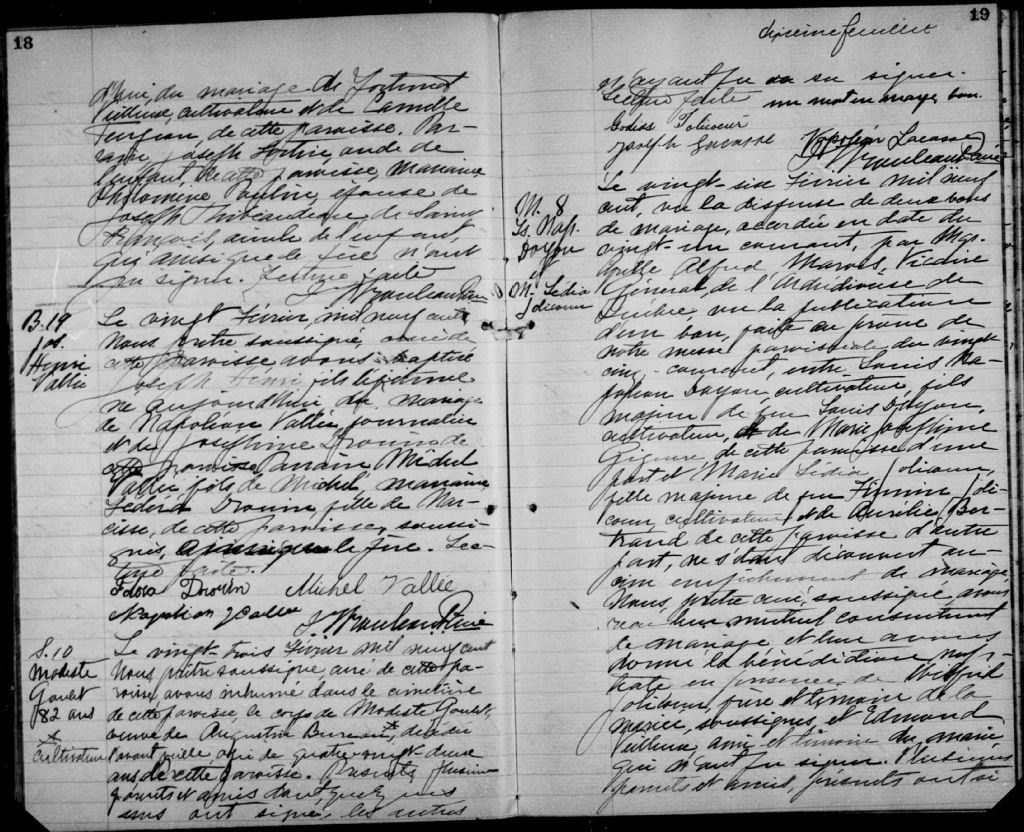 18
d'hui, du mariage de Fortunat
Veilleux, cultivateur et de Camille
de cette paroisse. Par-
rain, Joseph oncle de
l'enfant, de cette paroisse, Marraine
Philomène Poulin, épouse de
Joseph Thibeaudeau, de Saint
François, de l'enfant,
qui ainsi que le père n'ont
pu signer. Lecture faite
B. 19
Jos.
Henri
Vallée
Le vingt Février, mil neuf cent
Nous prêtre soussigné, curé de
cette paroisse avons baptisé
Joseph Henri fils légitime
né aujourd'hui du mariage
de Napoléon Vallée, journalier
et de Joséphine Drouin de
cette paroisse Parrain Michel
Vallée fils de Michel marraine
Drouin, fille de Nar-
cisse, de cette paroisse, soussi-
gnés, ainsi que le père. Lec-
ture faite.
Drouin Michel Vallée
S. 10
Modeste
Goulet
82 ans
*
Cultivateur
Le vingt trois Février mil neuf cent
Nous prêtre soussigné, curé de cette pa-
roisse, avons inhumé dans le cimetière
de cette paroisse, le corps de Modeste Goulet,
de Augustine * décédé
l'avant veille agé de quatre-vingt-deux
ans de cette paroisse. Présents plusieurs
parents et amis dont quelques
uns ont signé, les autres
19
dixième feuillet
n'ayant pu su signer.
Lecture faite un mot en marge, bon.
Joseph Lacasse
Napoléon Lacasse
M. 8
Ls. Nap.
Doyon
et
M. Lédia
Jolicoeur
Le vingt-six Février mil neuf
cent, vu la dispense de deux bans
de mariage, accordée en date du
vingt-un courant, par Mgr.
Alfred Marois, Vicaire
Général, de l'Archidiocèse de
Québec, vu la publication
d'un ban, faite au prône de
notre messe paroissiale, du vingt-
cinq courant, entre Louis Na-
poléon Doyon, cultivateur, fils
majeur de feu Louis Doyon,
cultivateur, et de Marie Joséphine
de cette paroisse d'une
part et Marie Lédia Jolicoeur,
fille majeure de feu Firmin Joli-
coeur, cultivateur et de Aurélie Ber-
trand de cette paroisse d'autre
part, ne s'étant découvert au-
cun empêchement de mariage,
Nous, prêtre curé, soussigné, avons
reçu leur mutuel consentement
de mariage et leur avons
donné la bénédiction nup-
tiale en présence de Wilfrid
Jolicoeur, frère et témoin de la
mariée, soussignés, et Edmond
Veilleux, ami et témoin du marié
qui n'ont pu signer. Plusieurs
parents et amis, présents ont si